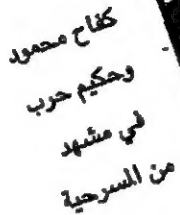 كفاح محمود
وحكيم حرب
في مشهد
من المسرحية